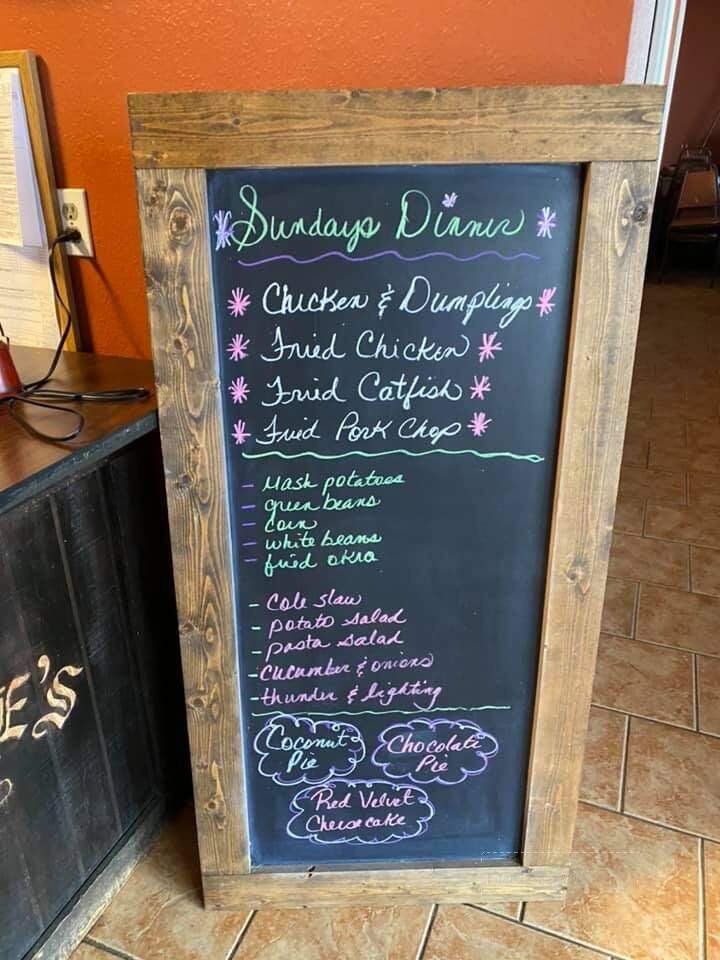 Sundays Dinner
Chicken & Dumplings
Fried Chicken
Fried Catfish
Fried Pork Chop
- Mash potatoes
- green beans
- corn
- white beans
- fried okra
- Cole slaw
- potato salad
- pasta salad
- cucumber & onions
- thunder & lighting
Coconut
Pie
Chocolate
Pie
Red Velvet
Cheesecake
E'S